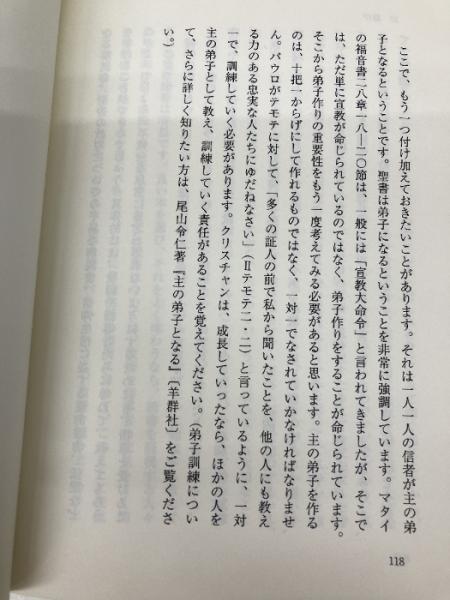 ここで、もう一つ付け加えておきたいことがあります。それは一人一人の信者が主の弟
子となるということです。聖書は弟子になるということを非常に強調しています。マタイ
の福音書二八章一八―二〇節は、一般には「宣教大命令」と言われてきましたが、そこで
は、ただ単に宣教が命じられているのではなく、弟子作りをすることが命じられています。
そこから弟子作りの重要性をもう一度考えてみる必要があると思います。主の弟子を作る
のは、十把一からげにして作れるものではなく、一対一でなされていかなければなりませ
ん。パウロがテモテに対して、「多くの証人の前で私から聞いたことを、他の人にも教え
る力のある忠実な人たちにゆだねなさい」(Ⅱテモテ二・二)と言っているように、一対
一で、訓練していく必要があります。クリスチャンは、成長していったなら、ほかの人を
主の弟子として教え、訓練していく責任があることを覚えてください。(弟子訓練につい
て、さらに詳しく知りたい方は、尾山令仁著『主の弟子となる』〔羊群社〕をご覧くださ
い。)
118